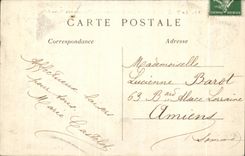 CARTE POSTALE
Correspondance
Adresse
Affectueux baisers
pour tous
Marie
Mademoiselle
Lucienne Barot
63 Bard Alsace Lorraine
Amiens
Somme